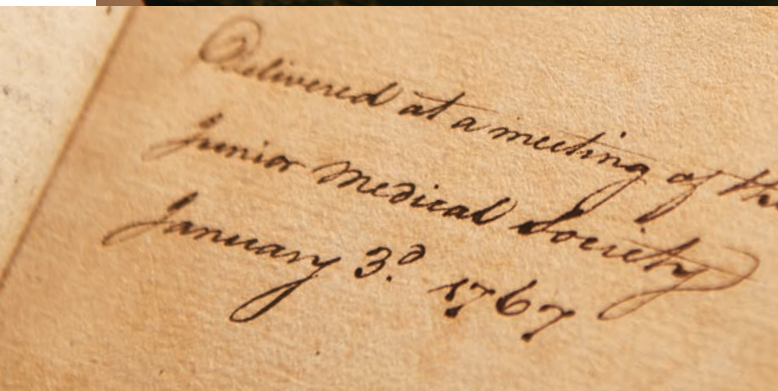 Delivered at a meeting of the
Junior Medical Society
January 3d. 1767